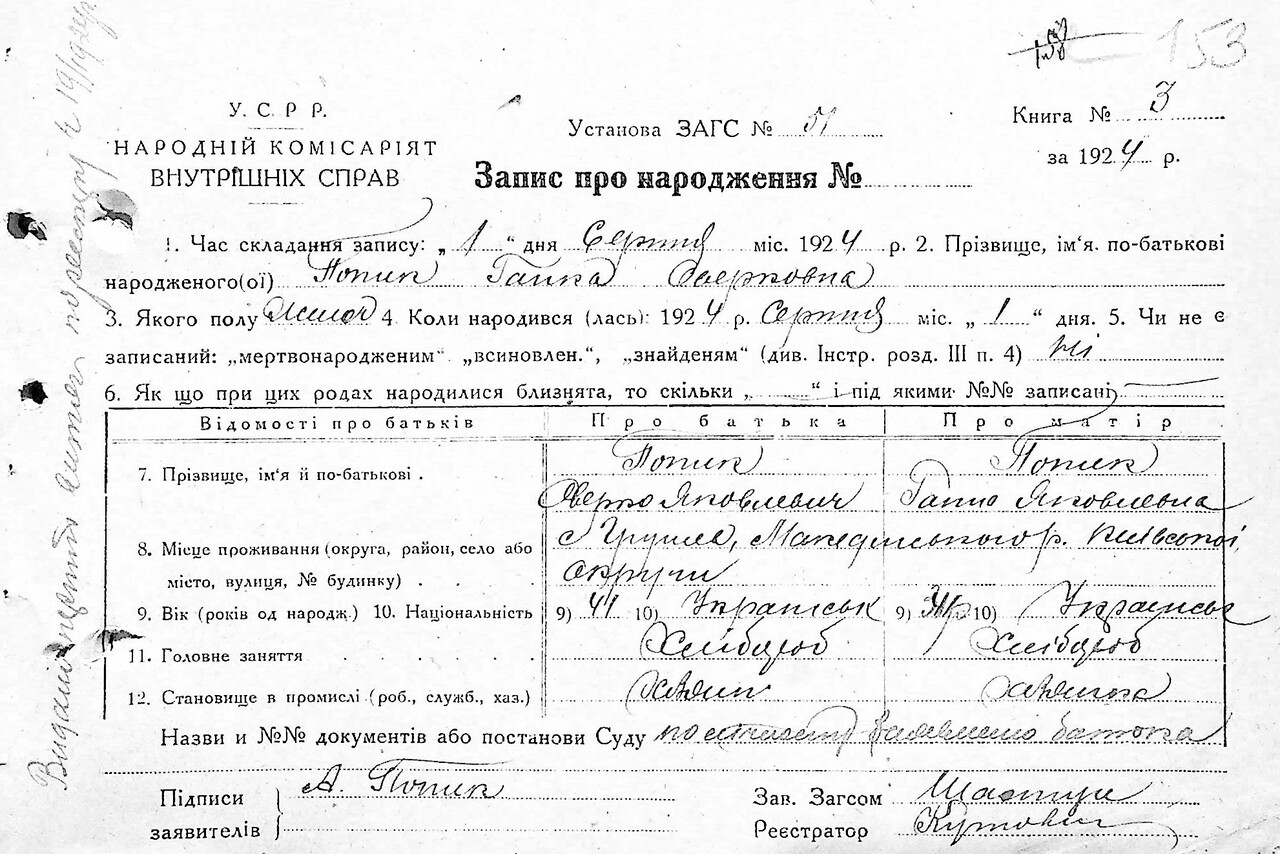 153
У. С. Р Р.
НАРОДНІЙ КОМІСАРІЯТ
ВНУТРІШНІХ СПРАВ
Установа ЗАГС № 51
Книга № 3
за 1924 р.
Запис про народження №
1. Час складання запису: „ 1 “ дня Серпня міс. 1924 р. 2. Прізвище, ім'я. по-батькові
народженого(ої) Попик Ганка Оверковна
3. Якого полу жіноч 4. Коли народився (лась): 1924 р. Серпня міс. „ 1 “ дня. 5. Чи не є
записаний: „мертвонародженим“ „всиновлен.“, „знайденям“ (див. Інстр. розд. III п. 4) ні
6. Як що при цих родах народилися близнята, то скільки „ “ і під якими №№ записані
Відомості про батьків Про батька Про матір
7. Прізвище, ім'я й по-батькові . Попик Попик
Оверко Яковлевич Ганна Яковлевна
8. Місце проживання (округа, район, село або с Грушев, Македонського р. Київської
місто, вулиця, № будинку) . . округи
9. Вік (років од народж.) 10. Національність 9) 41 10) Українськ 9) 10) Українськ
11. Головне заняття . . . . . Хлібороб Хлібороб
12. Становище в промислі (роб., служб., хаз.) хазяин хазяйка
Назви и №№ документів або постанови Суду батька
Підписи А. Попик
заявителів
Зав. Загсом
Реєстратор